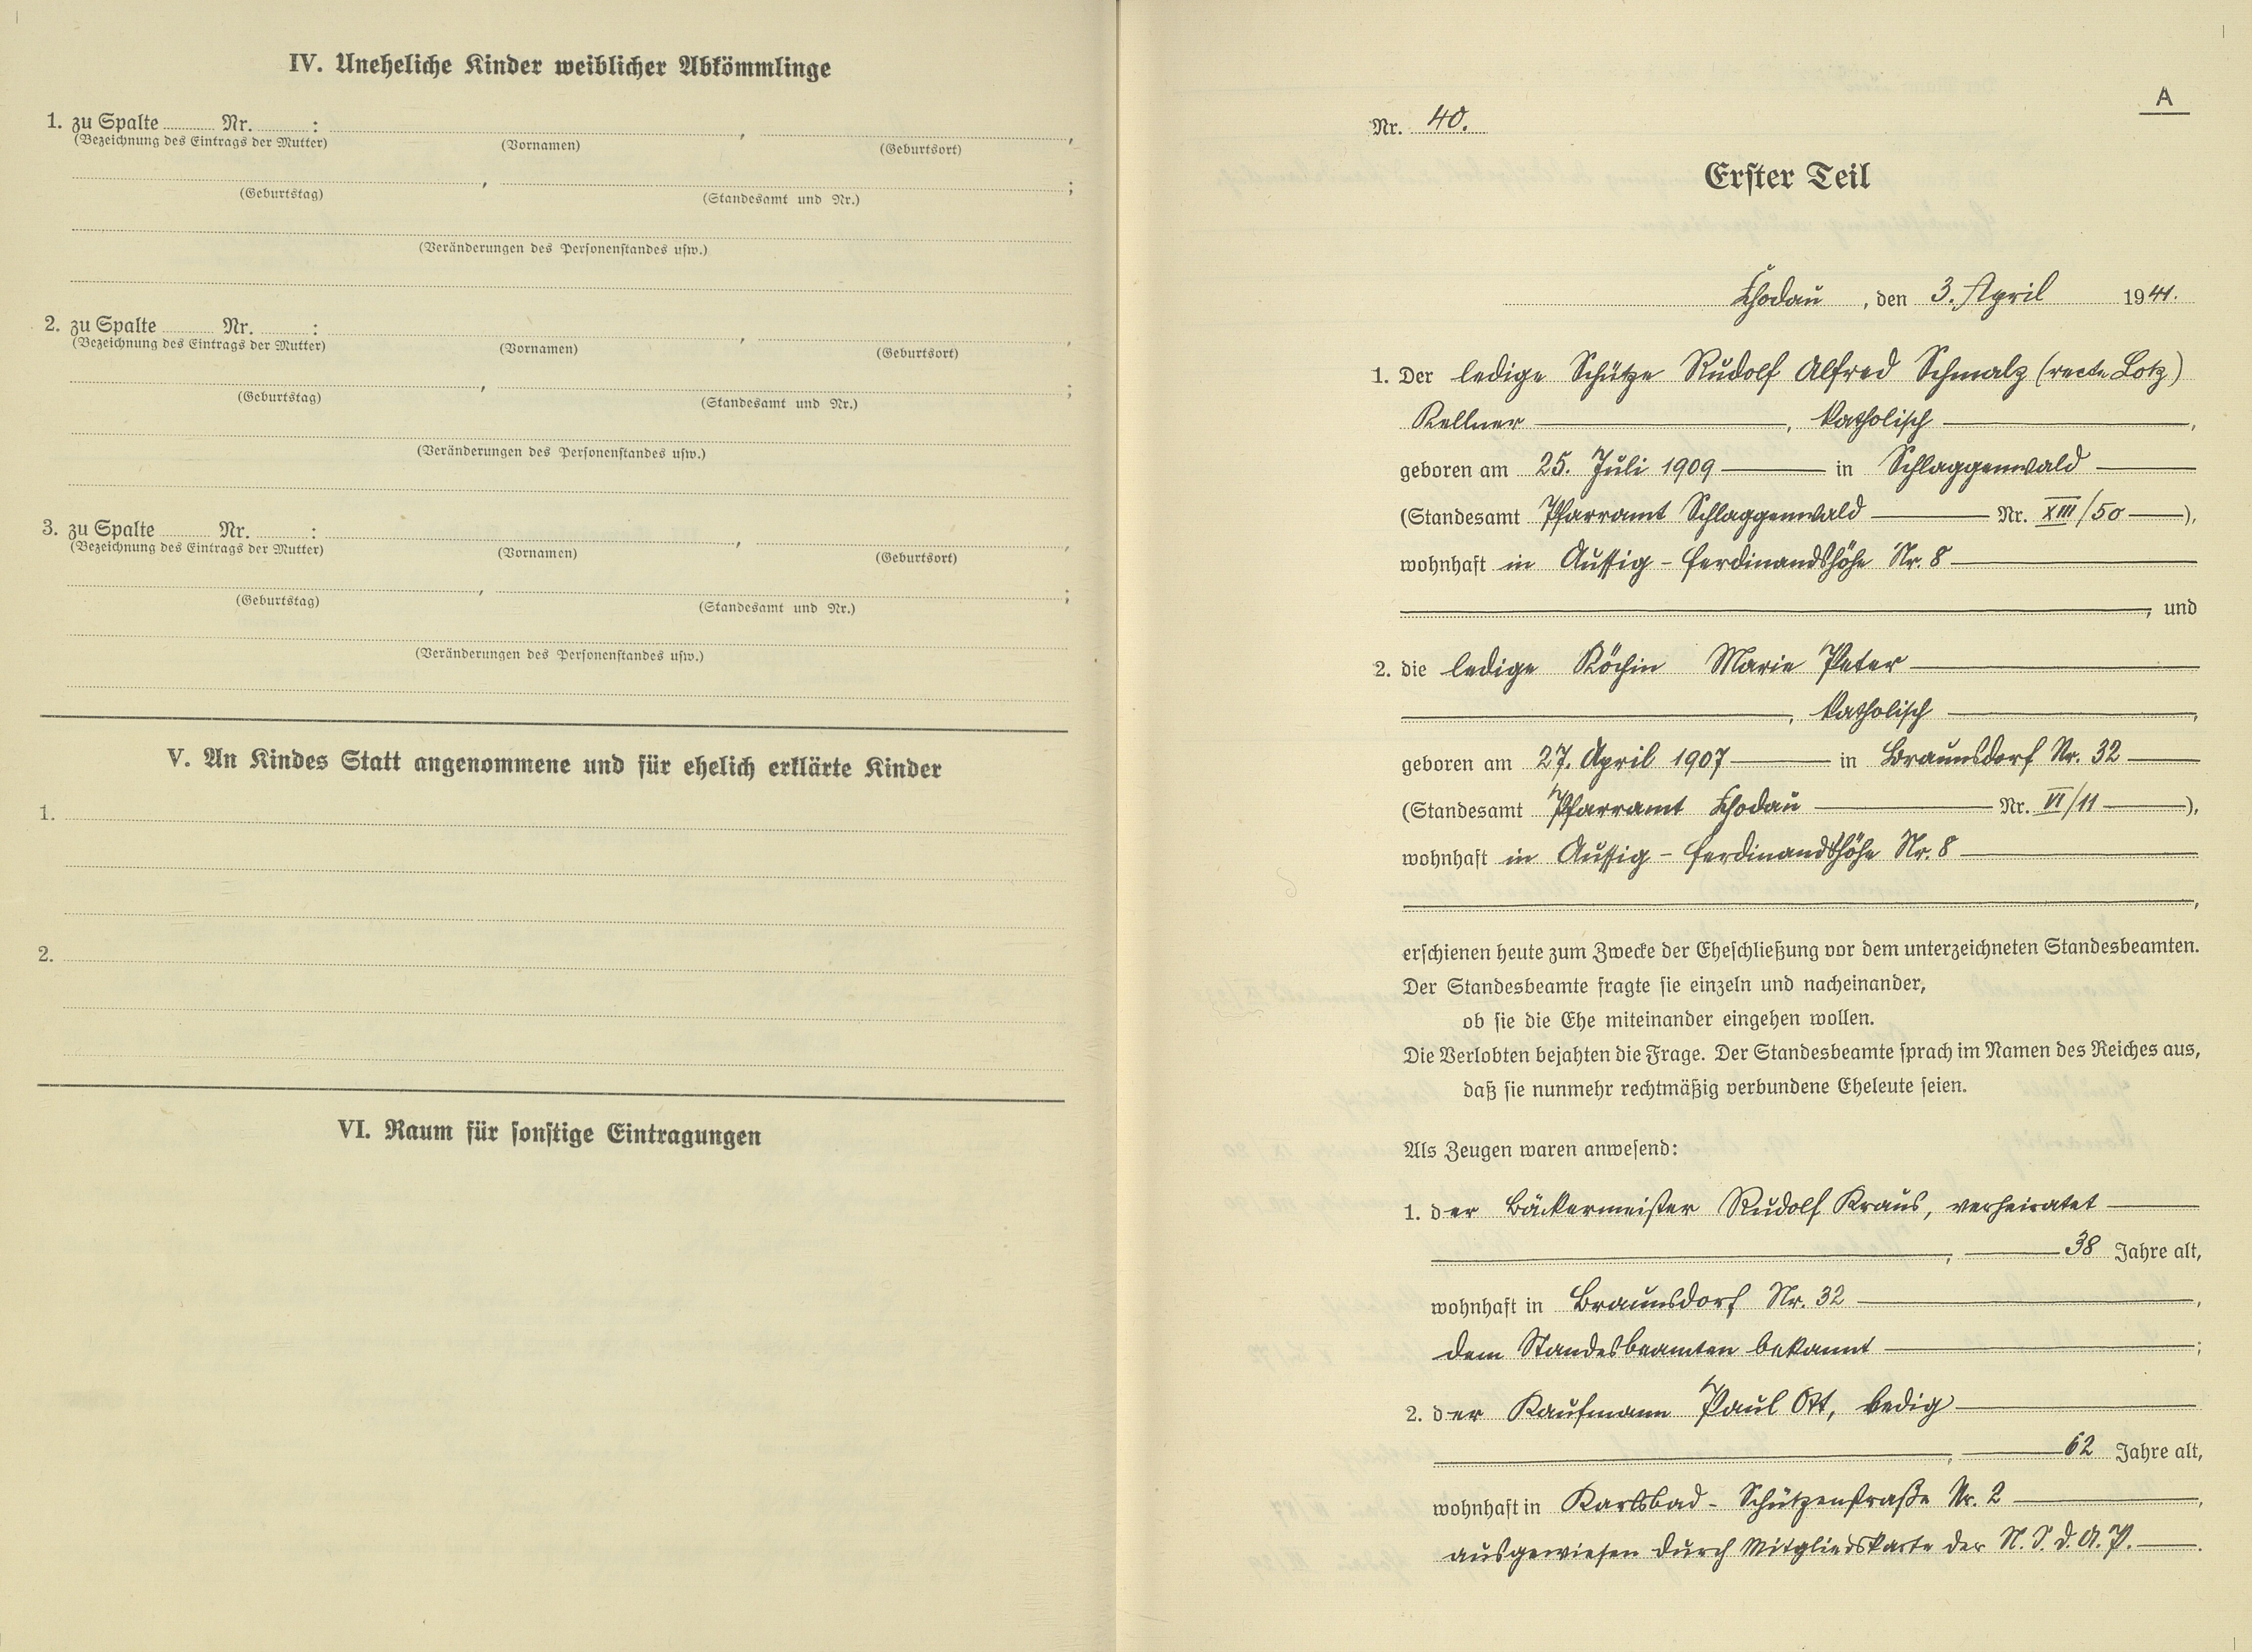 IV. Uneheliche Kinder weiblicher Abkömmlinge
1. zu Spalte ........ Nr. ........ : ........ , ........ ,
(Bezeichnung des Eintrags der Mutter) (Vornamen) (Geburtsort)
........ , ........ ;
(Geburtstag) (Standesamt und Nr.)
(Veränderungen des Personenstandes usw.)
2. zu Spalte ........ Nr. ........ : ........ , ........ ,
(Bezeichnung des Eintrags der Mutter) (Vornamen) (Geburtsort)
........ , ........ ;
(Geburtstag) (Standesamt und Nr.)
(Veränderungen des Personenstandes usw.)
3. zu Spalte ........ Nr. ........ : ........ , ........ ,
(Bezeichnung des Eintrags der Mutter) (Vornamen) (Geburtsort)
........ , ........ ;
(Geburtstag) (Standesamt und Nr.)
(Veränderungen des Personenstandes usw.)
V. An Kindes Statt angenommene und für ehelich erklärte Kinder
1.
2.
VI. Raum für sonstige Eintragungen
A
Nr. 40.
Erster Teil
Chodau, den 3. April 1941.
1. Der ledige Schütze Rudolf Alfred Schmalz (recte Lotz)
Kellner, katholisch,
geboren am 25. Juli 1909 in Schlaggenwald
(Standesamt Pfarramt Schlaggenwald Nr. XIII/50),
wohnhaft in Aussig - Ferdinandshöhe Nr. 8
, und
2. die ledige Köchin Marie Peter
, katholisch,
geboren am 27. April 1907 in Braunsdorf Nr. 32
(Standesamt Pfarramt Chodau Nr. VI/11),
wohnhaft in Aussig - Ferdinandshöhe Nr. 8
,
erschienen heute zum Zwecke der Eheschließung vor dem unterzeichneten Standesbeamten.
Der Standesbeamte fragte sie einzeln und nacheinander,
ob sie die Ehe miteinander eingehen wollen.
Die Verlobten bejahten die Frage. Der Standesbeamte sprach im Namen des Reiches aus,
daß sie nunmehr rechtmäßig verbundene Eheleute seien.
Als Zeugen waren anwesend:
1. der Bäckermeister Rudolf Kraus, verheiratet
, 38 Jahre alt,
wohnhaft in Braunsdorf Nr. 32,
dem Standesbeamten bekannt;
2. der Kaufmann Paul Ott, ledig
, 62 Jahre alt,
wohnhaft in Karlsbad - Schützenstraße Nr. 2,
ausgewiesen durch Mitgliedskarte der N.S.d.A.P.